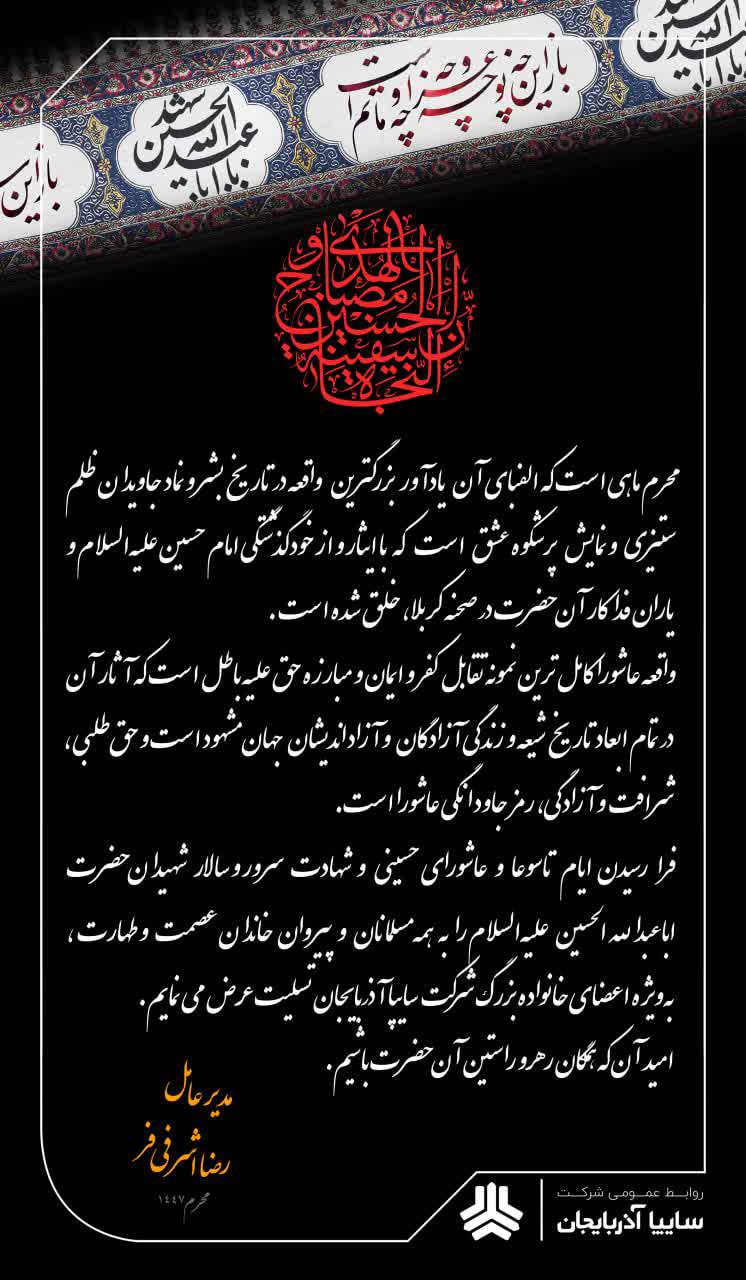 باز این چه نوحه و چه عزا و چه ماتم است
یا اباعبدالله الحسین شهید
باز این
إن الحسین مصباح الهدی و سفینة النجاة
محرم ماهی است که الفبای آن یادآور بزرگترین واقعه در تاریخ بشر و نماد جاویدان ظلم
ستیزی و نمایش پرشکوه عشق است که با ایثار و از خودگذشتگی امام حسین علیه السلام و
یاران فداکار آن حضرت در صحنه کربلا، خلق شده است.
واقعه عاشورا کامل ترین نمونه تقابل کفر و ایمان و مبارزه حق علیه باطل است که آثار آن
در تمام ابعاد تاریخ شیعه و زندگی آزادگان و آزاداندیشان جهان مشهود است و حق طلبی،
شرافت و آزادگی، رمز جاودانگی عاشورا است.
فرا رسیدن ایام تاسوعا و عاشورای حسینی و شهادت سرور و سالار شهیدان حضرت
اباعبدالله الحسین علیه السلام را به همه مسلمانان و پیروان خاندان عصمت و طهارت،
به ویژه اعضای خانواده بزرگ شرکت سایپا آذربایجان تسلیت عرض می نمایم.
امید آن که همگان رهرو راستین آن حضرت باشیم.
مدیر عامل
رضا اشرفی فر
محرم ۱۴۴۷
روابط عمومی شرکت
سایپا آذربایجان